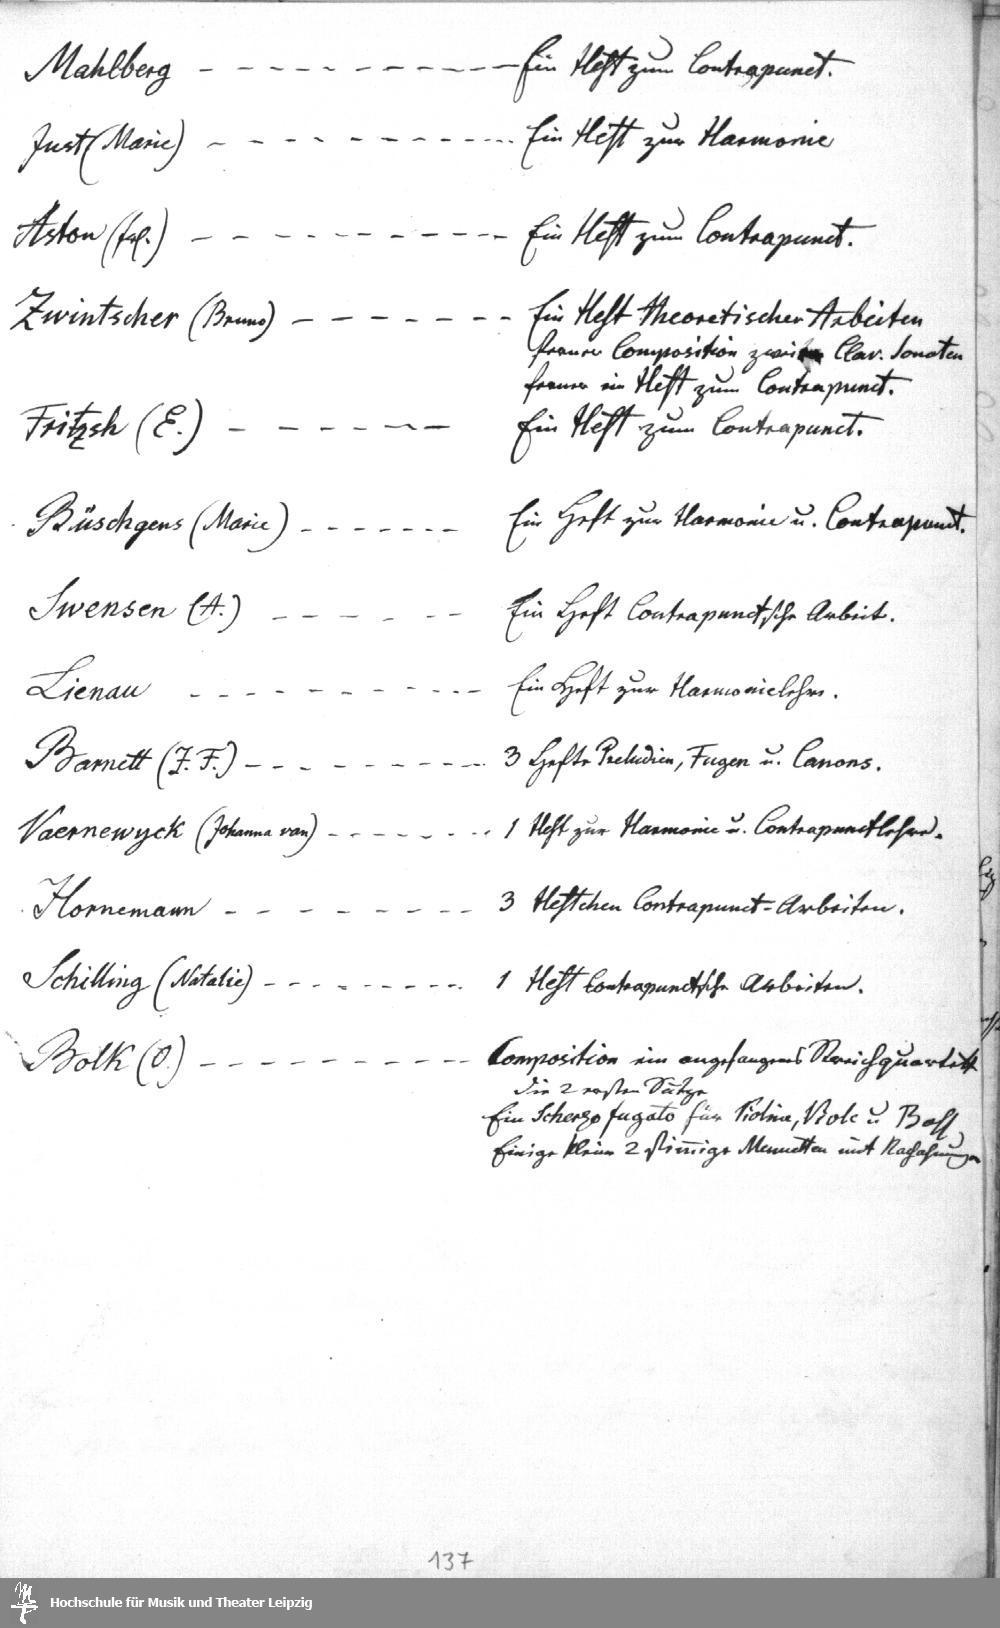 Mahlberg - - - - - - - - - - - Ein Heft zum Contrapunct.
Just (Marie) - - - - - - - - - - - Ein Heft zur Harmonie
Aston (Frl.) - - - - - - - - - - Ein Heft zum Contrapunct.
Zwintscher (Bruno) - - - - - - - Ein Heft theoretischer Arbeiten
ferner Composition zweier Clav. Sonaten
ferner ein Heft zum Contrapunct.
Fritzsh (E.) - - - - - - Ein Heft zum Contrapunct.
Büschgens (Marie) - - - - - - Ein Heft zur Harmonie u. Contrapunct.
Swensen (A.) - - - - - Ein Heft Contrapunctsche Arbeit.
Lienau - - - - - - - - - - Ein Heft zur Harmonielehre.
Barnett (J. F.) - - - - - - - - - 3 Hefte Preludien, Fugen u. Canons.
Vaernewyck (Johanna van) - - - - - - - 1 Heft zur Harmonie u. Contrapunctlehre.
Hornemann - - - - - - - - 3 Heftchen Contrapunct-Arbeiten.
Schilling (Natalie) - - - - - - - - - 1 Heft Contrapunctsche Arbeiten.
Bolk (O.) - - - - - - - - - - Composition ein angefangenes Streichquartett
die 2 ersten Sätze
Ein Scherzo fugato für Violine, Viole u Bass
Einige kleine 2 stimmige Menuetten mit Nachahmungen
137
Hochschule für Musik und Theater Leipzig